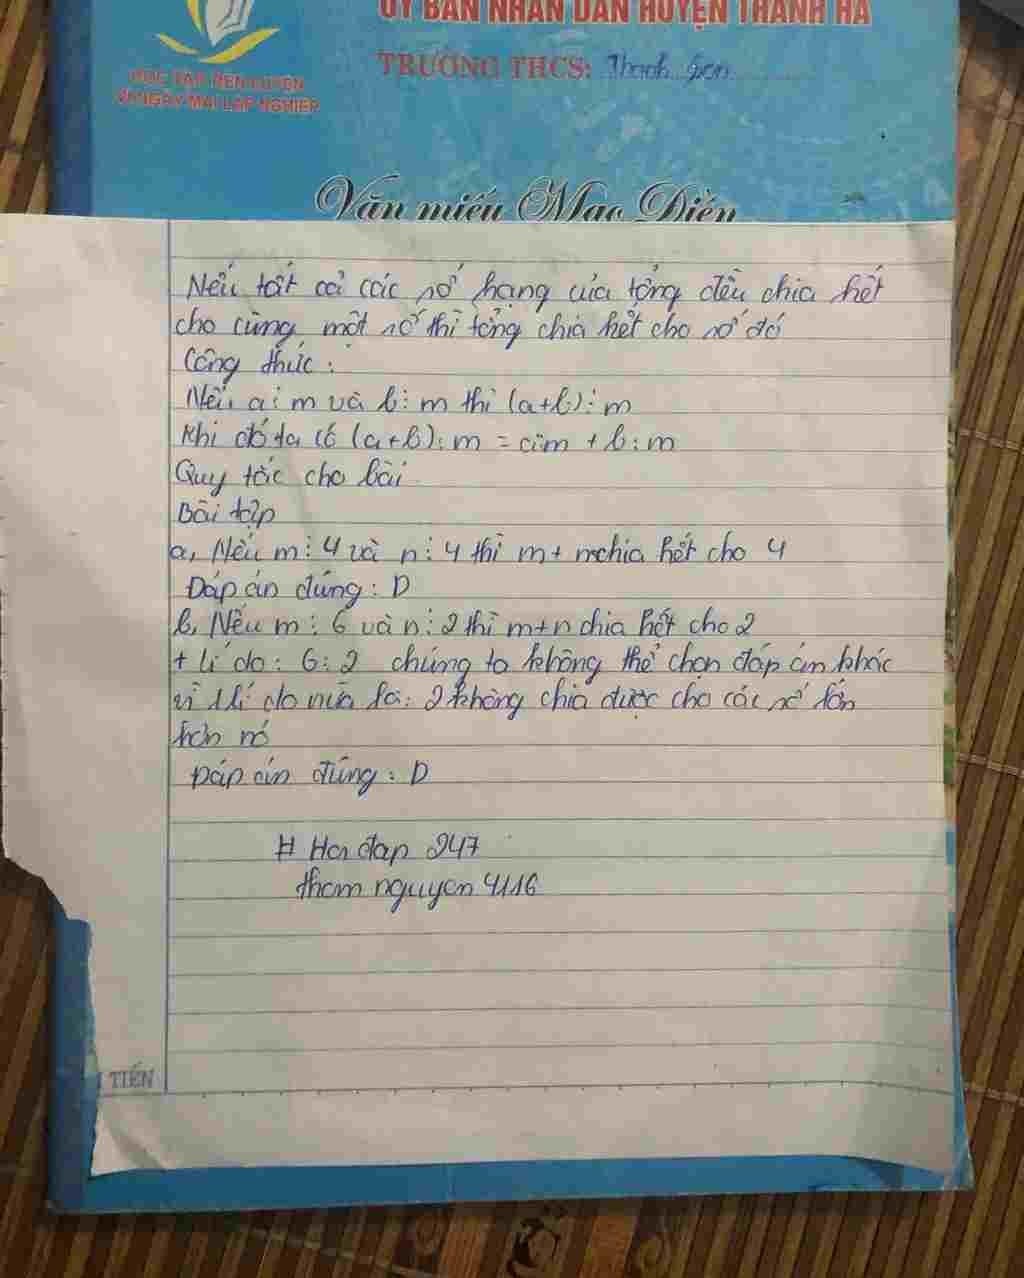 ỦY BAN NHÂN DÂN HUYỆN THANH HÀ
TRƯỜNG THCS: Thanh Sơn
HỌC TẬP, RÈN LUYỆN
VÌ NGÀY MAI LẬP NGHIỆP
Văn miếu Mao Điền
Nếu tất cả các số hạng của tổng đều chia hết
cho cùng một số thì tổng chia hết cho số đó
Công thức:
Nếu a⋮m và b⋮m thì (a+b)⋮m
Khi đó ta có (a+b):m = a:m + b:m
Quy tắc cho bài
Bài tập
a, Nếu m⋮4 và n⋮4 thì m+n chia hết cho 4
Đáp án đúng: D
b, Nếu m⋮6 và n⋮2 thì m+n chia hết cho 2
+ Lí do: 6:2 chúng ta không thể chọn đáp án khác
vì lí do nữa là: 2 không chia được cho các số lớn
hơn nó
Đáp án đúng: D
# Hoi đap 247
tham nguyen 4116
TIẾN